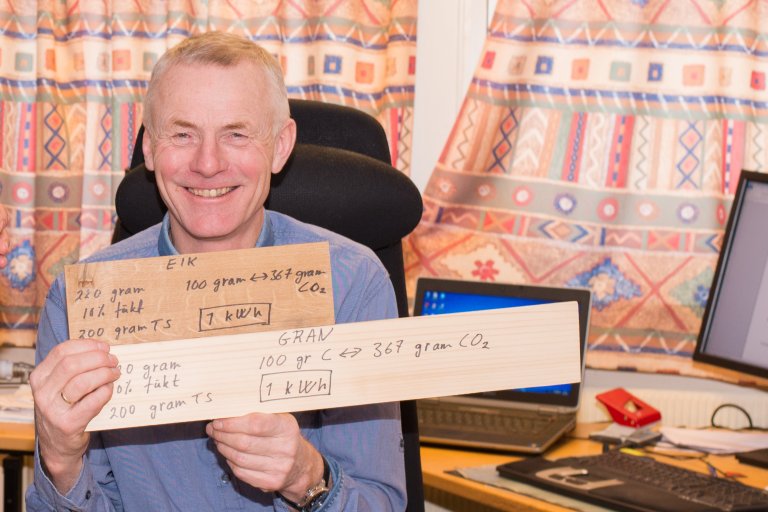 EIK
220 gram 100 gram ↔ 367 gram
10% fukt CO₂
200 gram TS 1 kWh
GRAN
0 gram 100 gr C ↔ 367 gram CO₂
0% fukt 1 kWh
200 gram TS